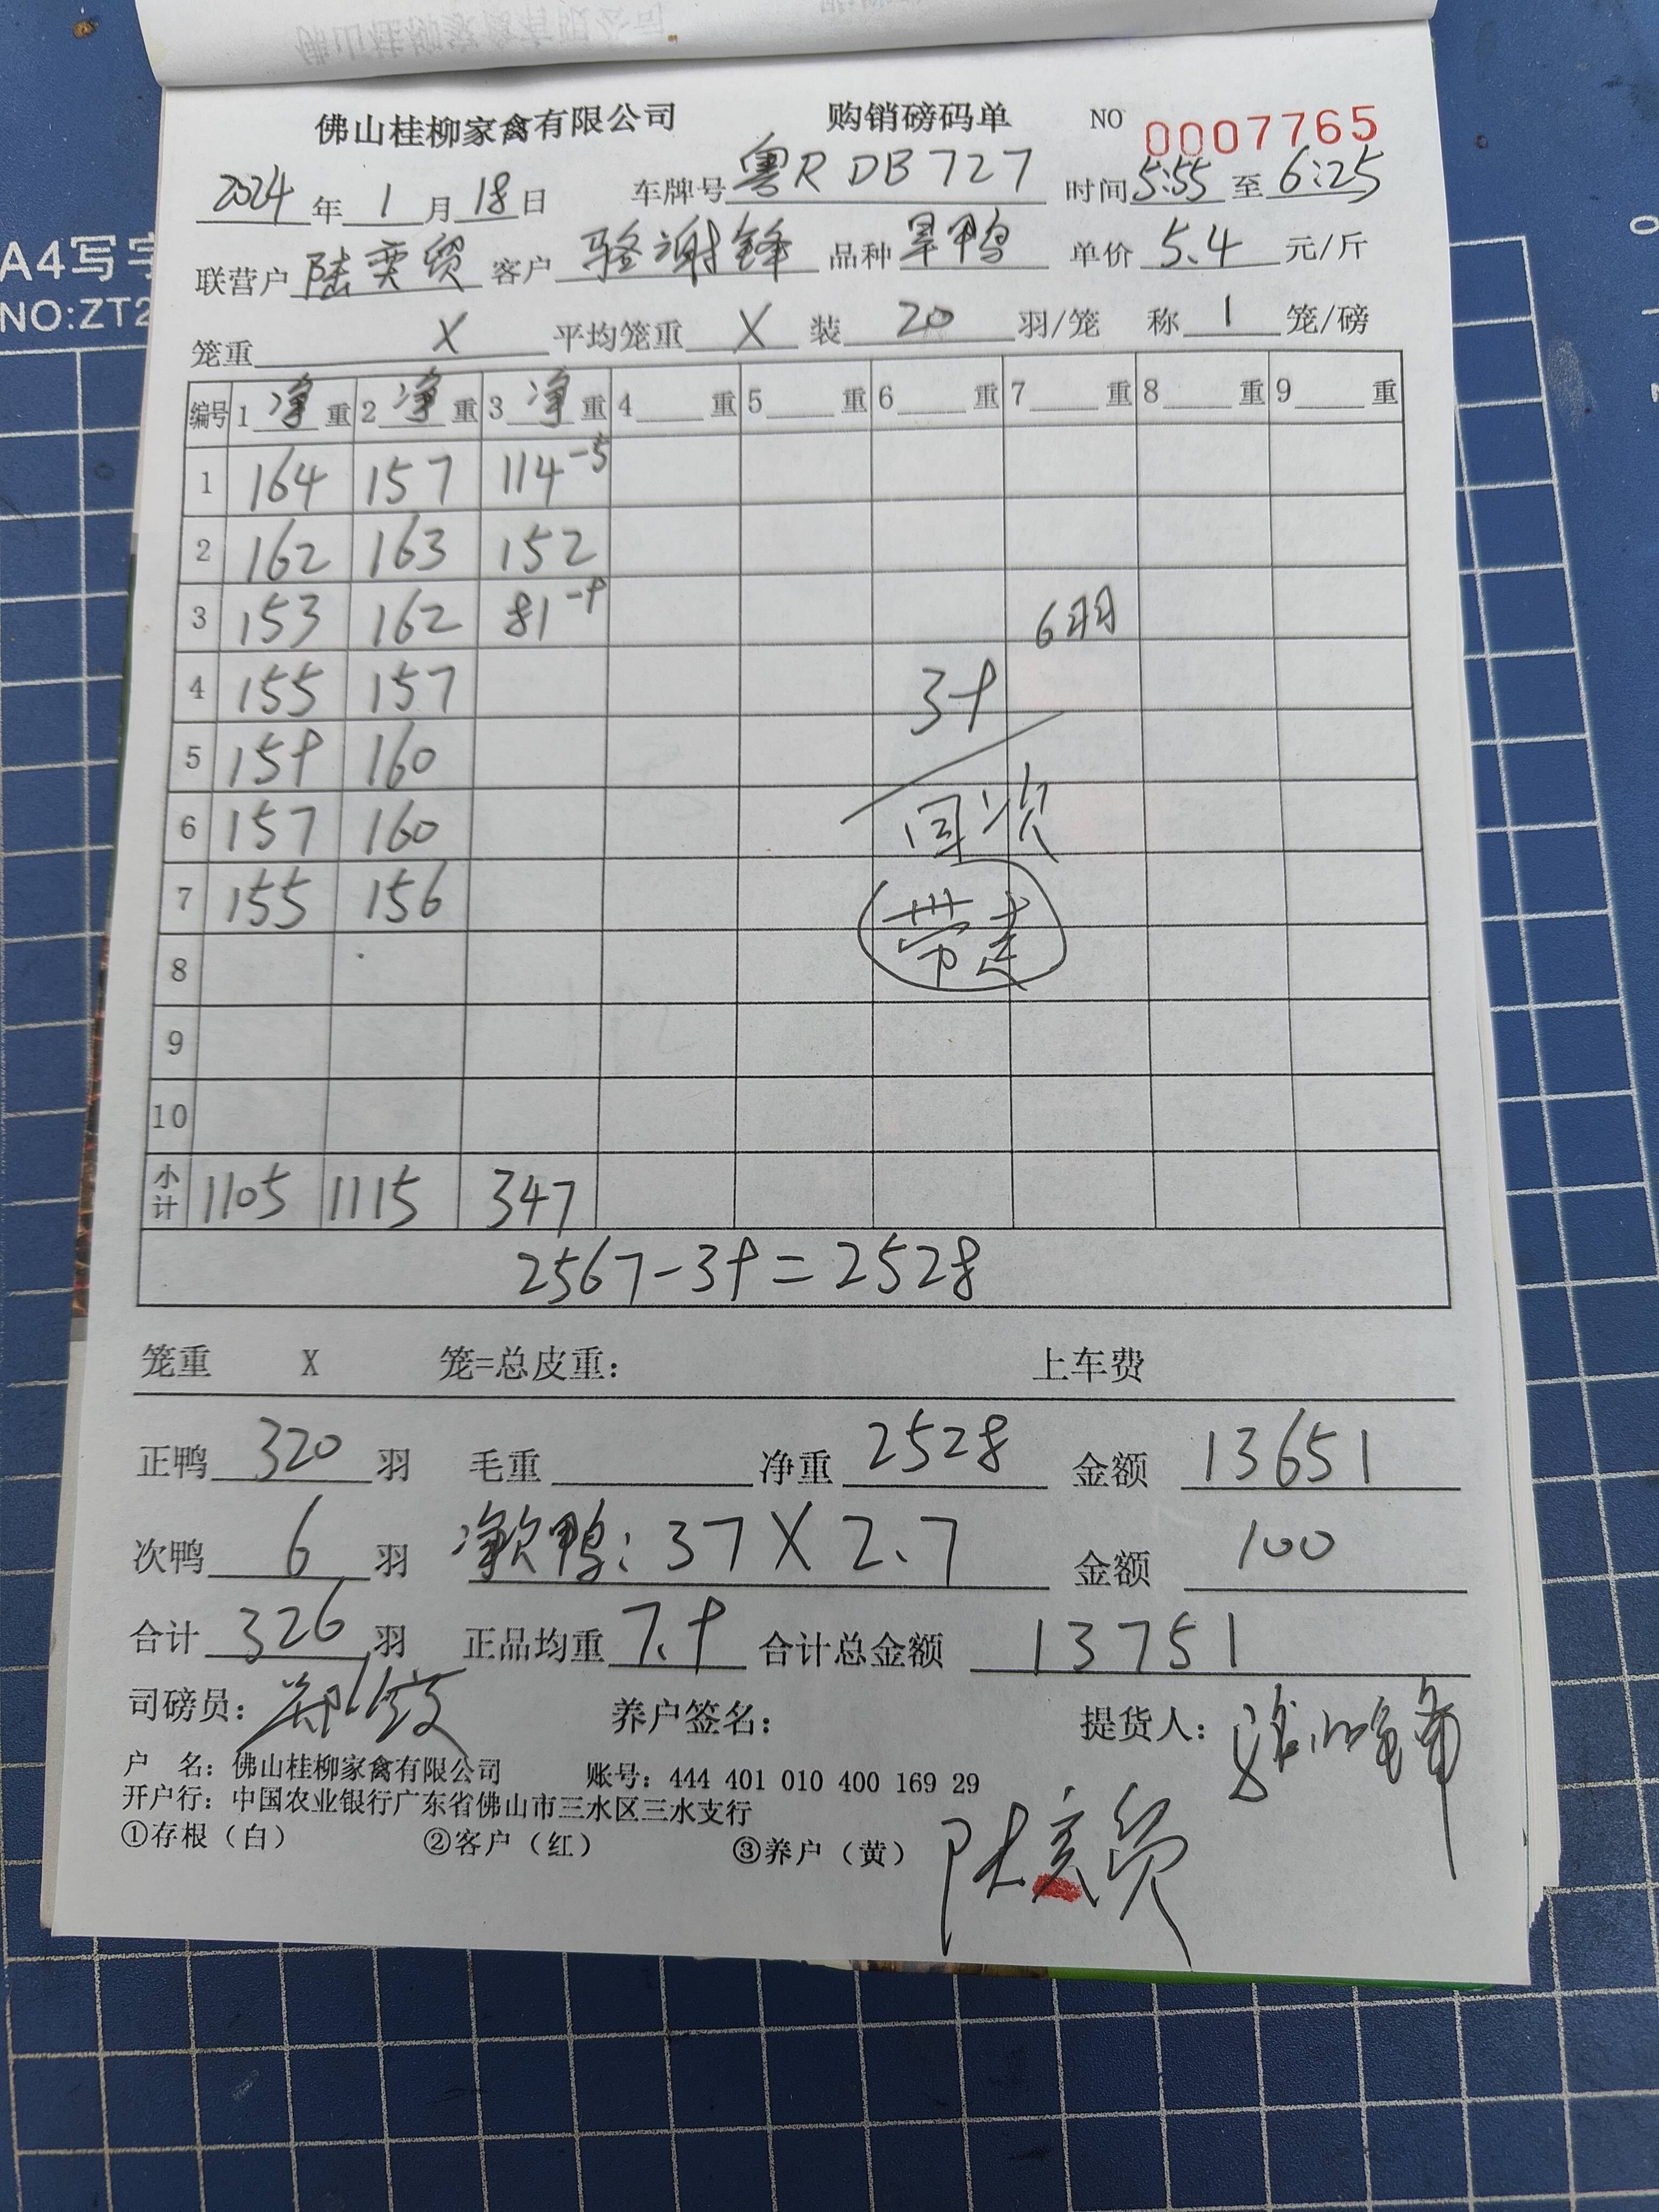 佛山桂柳家禽有限公司 购销磅码单 NO 0007765
2024年1月18日 车牌号粤R DB727 时间5:55至6:25
联营户陆奕贤 客户骆谢锋 品种旱鸭 单价5.4元/斤
笼重X 平均笼重X 装20羽/笼 称1笼/磅
编号 1净重 2净重 3净重 4重 5重 6重 7重 8重 9重
1 164 157 114-5
2 162 163 152
3 153 162 81-9 6羽
4 155 157 39
5 159 160
6 157 160 回次
7 155 156 带走
8
9
10
小计 1105 1115 347
2567-39=2528
笼重 X 笼=总皮重: 上车费
正鸭320羽 毛重 净重2528 金额13651
次鸭6羽 净次鸭:37X2.7 金额100
合计326羽 正品均重7.9 合计总金额13751
司磅员: 养户签名: 提货人:
户 名:佛山桂柳家禽有限公司 账号:444 401 010 400 169 29
开户行:中国农业银行广东省佛山市三水区三水支行
①存根(白) ②客户(红) ③养户(黄)
A4写字
NO:ZT2